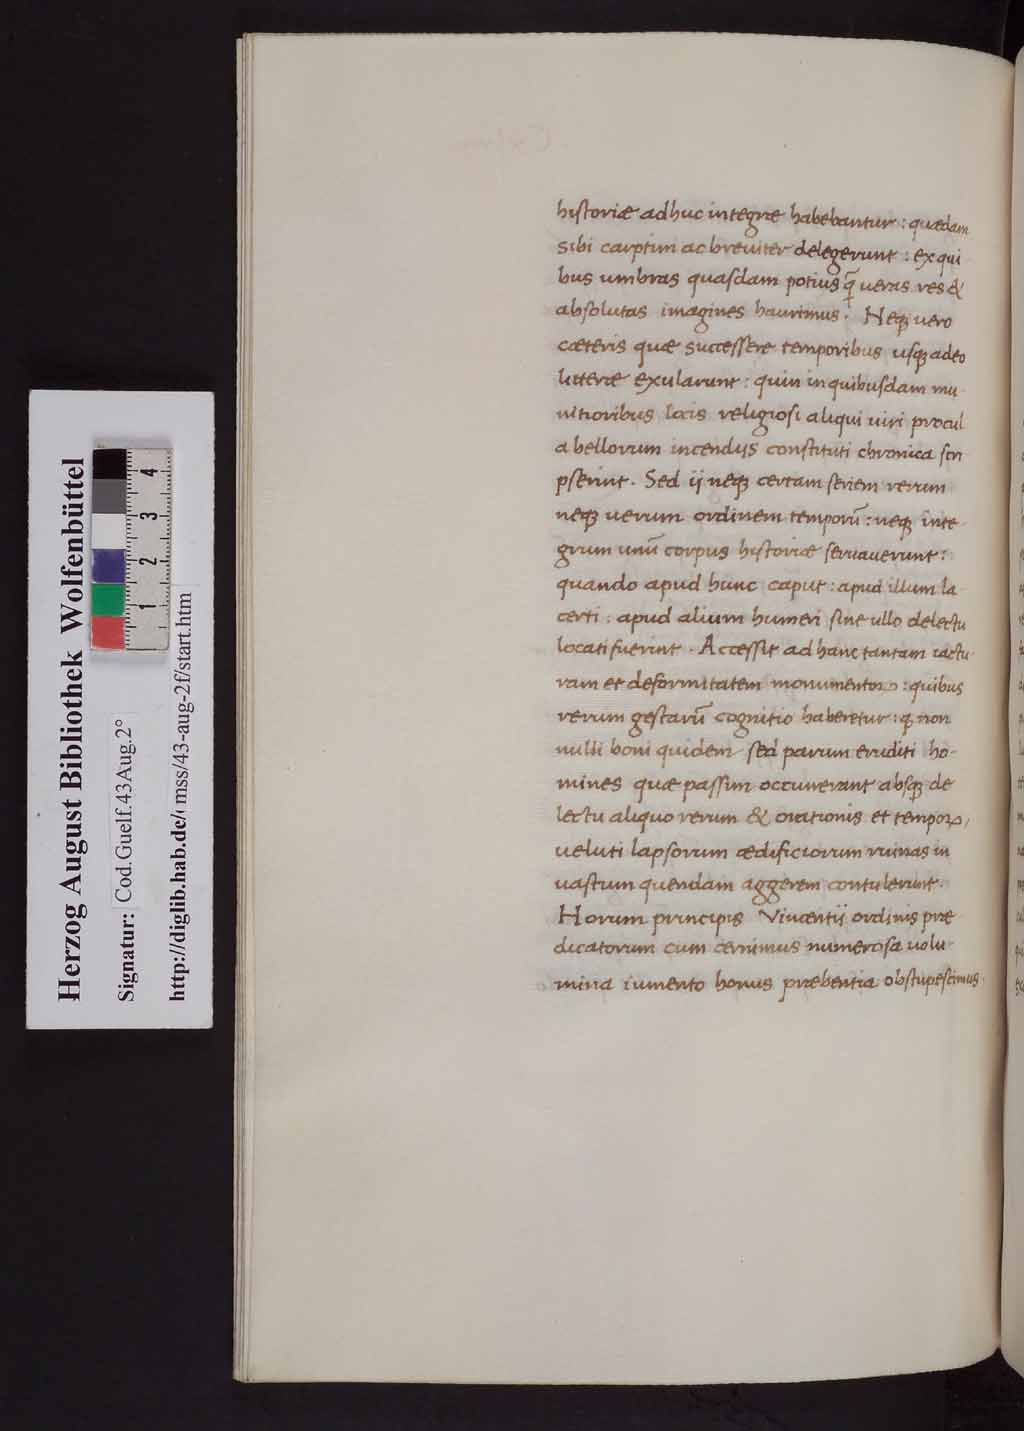 historiæ adhuc integræ habebantur : quædam
sibi carptim ac breuiter delegerunt : ex qui
bus umbras quasdam potius q̄ ueras res &
absolutas imagines haurimus . Neq; uero
cæteris quæ successere temporibus usq; adeo
litteræ exularunt : quin in quibusdam mu
nitioribus locis religiosi aliqui uiri procul
a bellorum incendijs constituti chronica scri
pserint . Sed ij neq; certam seriem rerum
neq; uerum ordinem temporū : neq; inte
grum unū corpus historiæ seruauerunt :
quando apud hunc caput : apud illum la
certi : apud alium humeri sine ullo delectu
locati fuerint . Accessit ad hanc tantam iactu
ram et deformitatem monumentoꝝ : quibus
rerum gestarū cognitio haberetur : q non
nulli boni quidem sed parum eruditi ho-
mines quæ passim occurrerant absq; de
lectu aliquo rerum & orationis et tempoꝝ /
ueluti lapsorum ædificiorum ruinas in
uastum quendam aggerem contulerunt .
Horum principis Vincentij ordinis præ
dicatorum cum cernimus numerosa uolu-
mina iumento honus præbentia obstupescimus .
Herzog August Bibliothek Wolfenbüttel
Signatur: Cod.Guelf.43Aug.2°
http://diglib.hab.de/ mss/43-aug-2f/start.htm
1 2 3 4